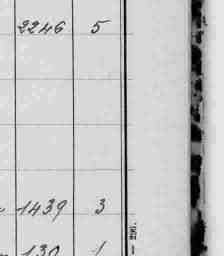 2246 5
1439 3
130 1
— 296.